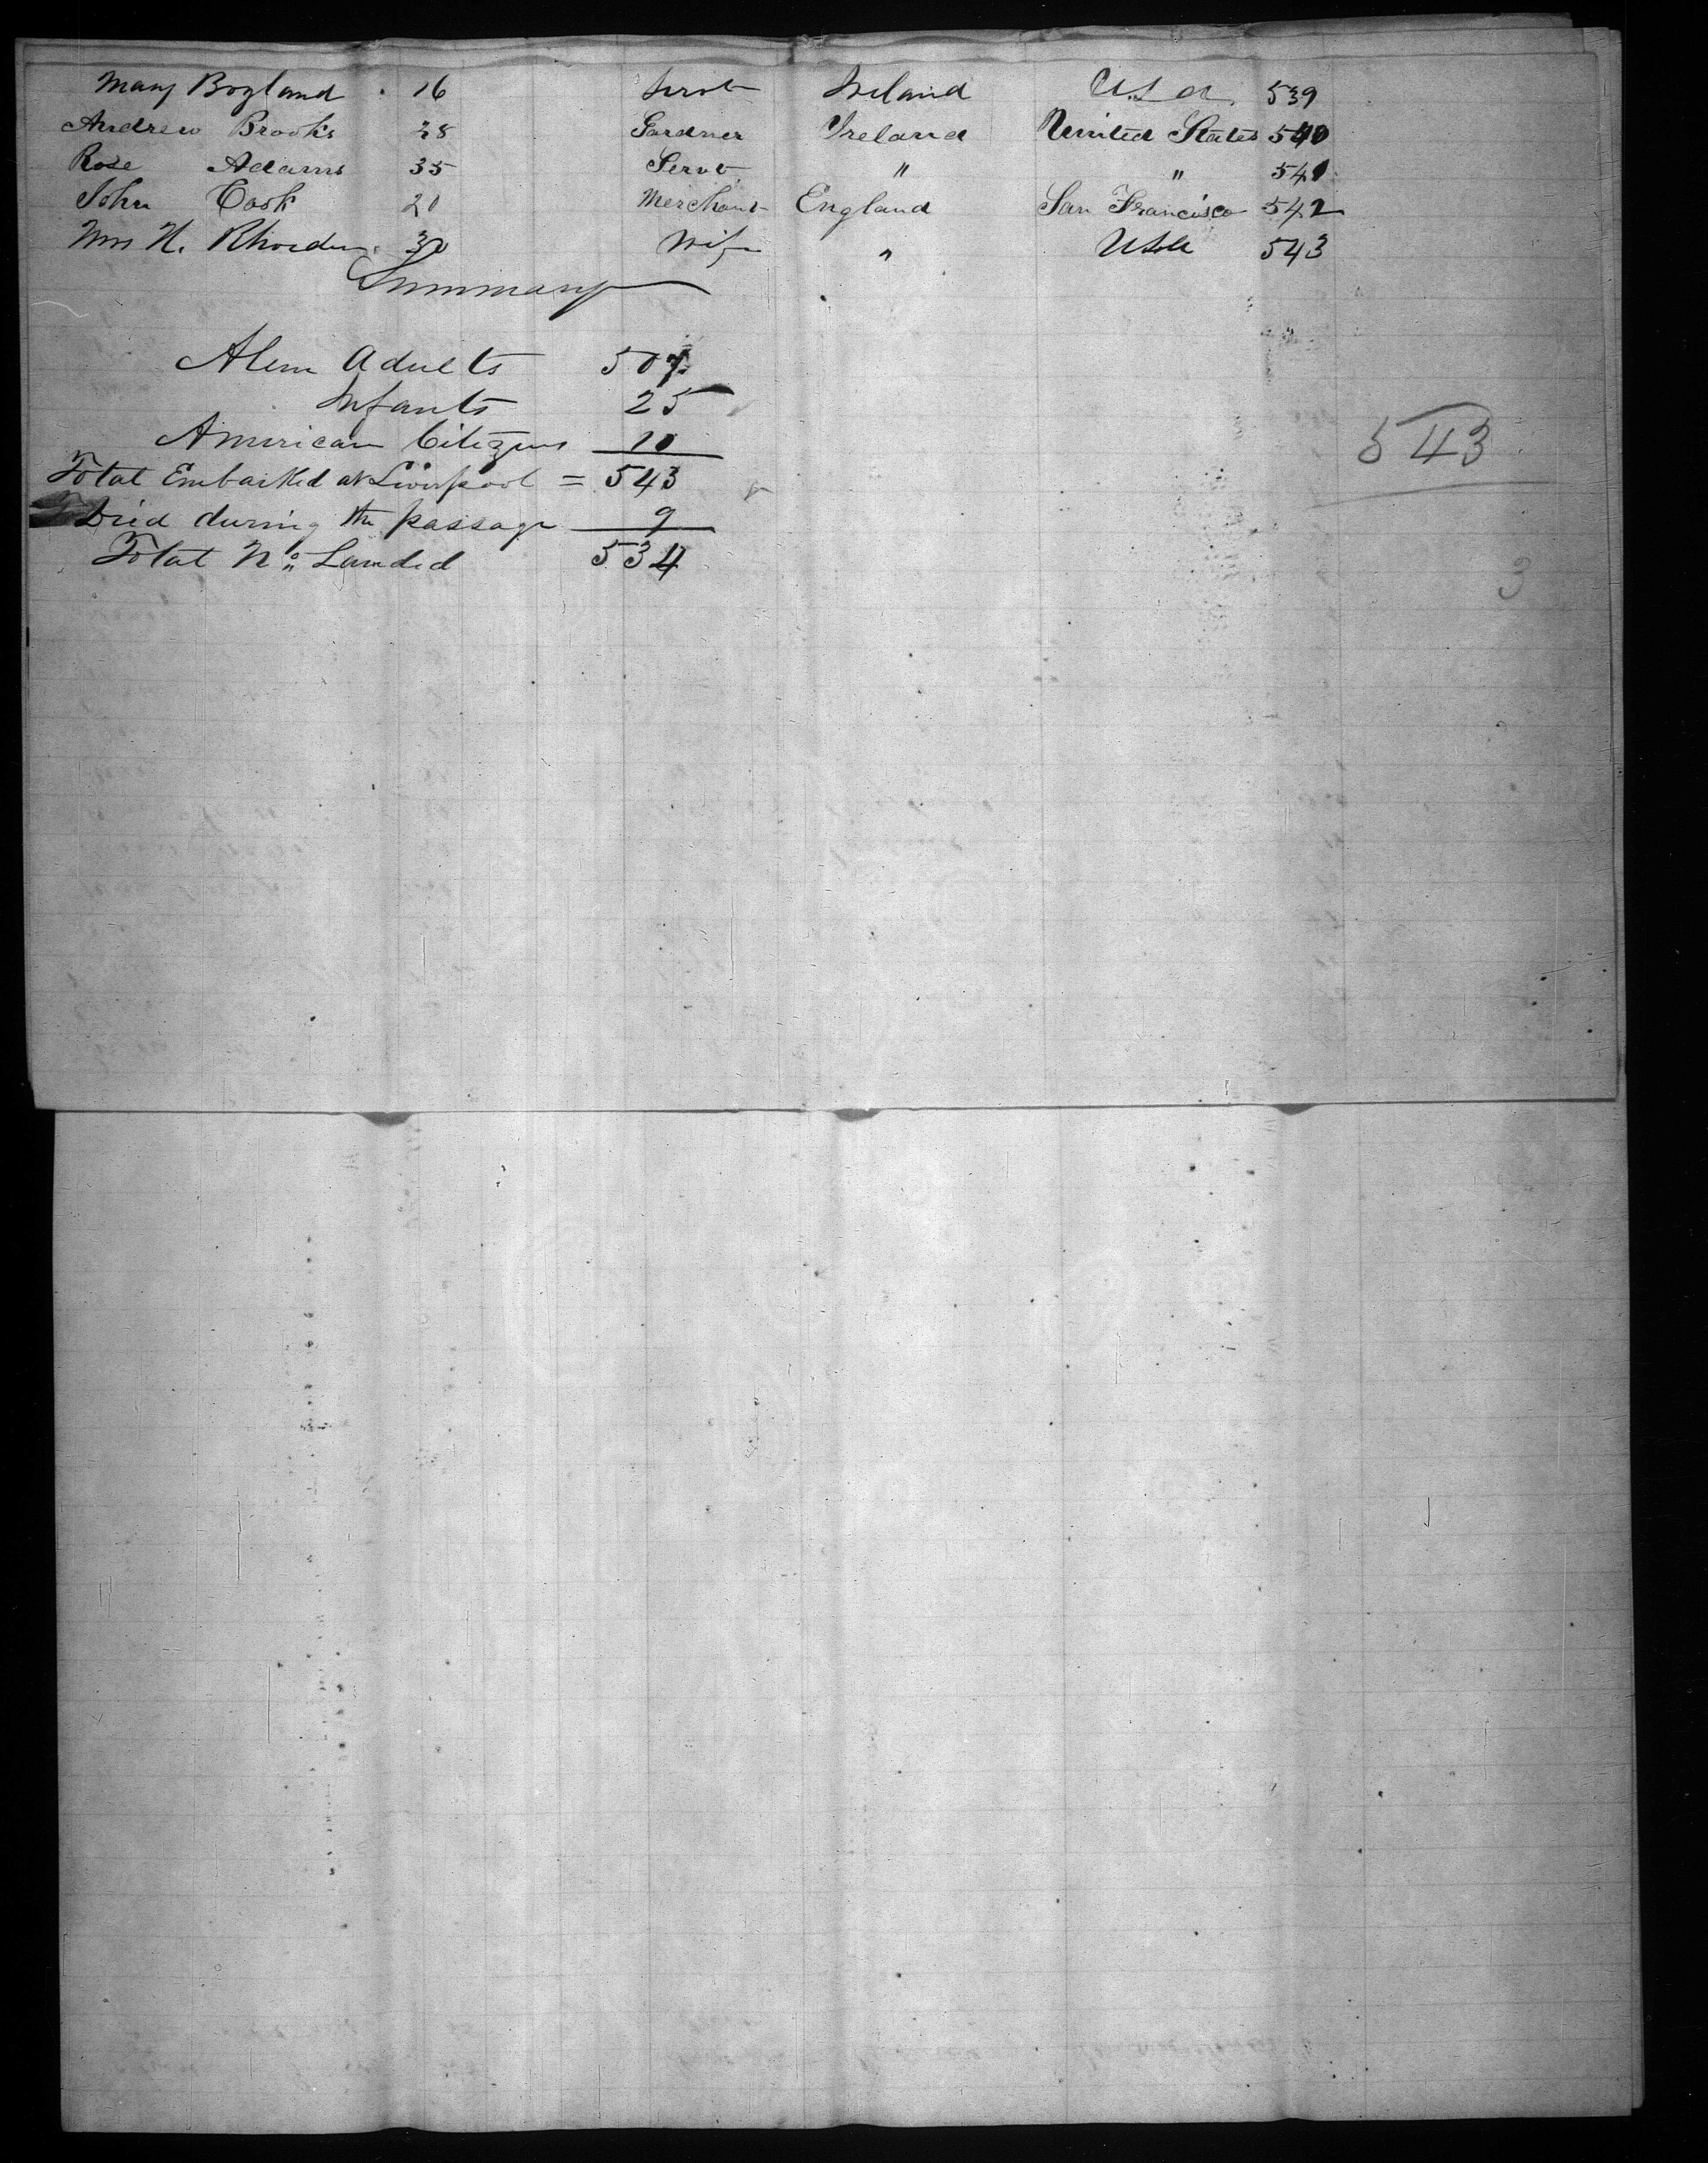 Mary Boyland 16 Servt Ireland U.S.A. 539
Andrew Brooks 28 Gardner Ireland United States 540
Rose Adams 35 Servt " " 541
John Cook 20 Merchant England San Francisco 542
Mrs H. 30 Wife " USA 543
Summary
Alien Adults 507
Infants 25
American Citizens 10
Total Embarked at Liverpool = 543
Died during the passage 9
Total No. Landed 534
543
3